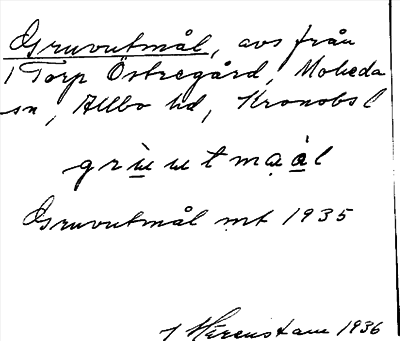 Gruvutmål, avs från
1 Torp Östregård, Moheda
sn, Allbo hd, Kronobs l
grùutmạàl
Gruvutmål mt 1935
1936